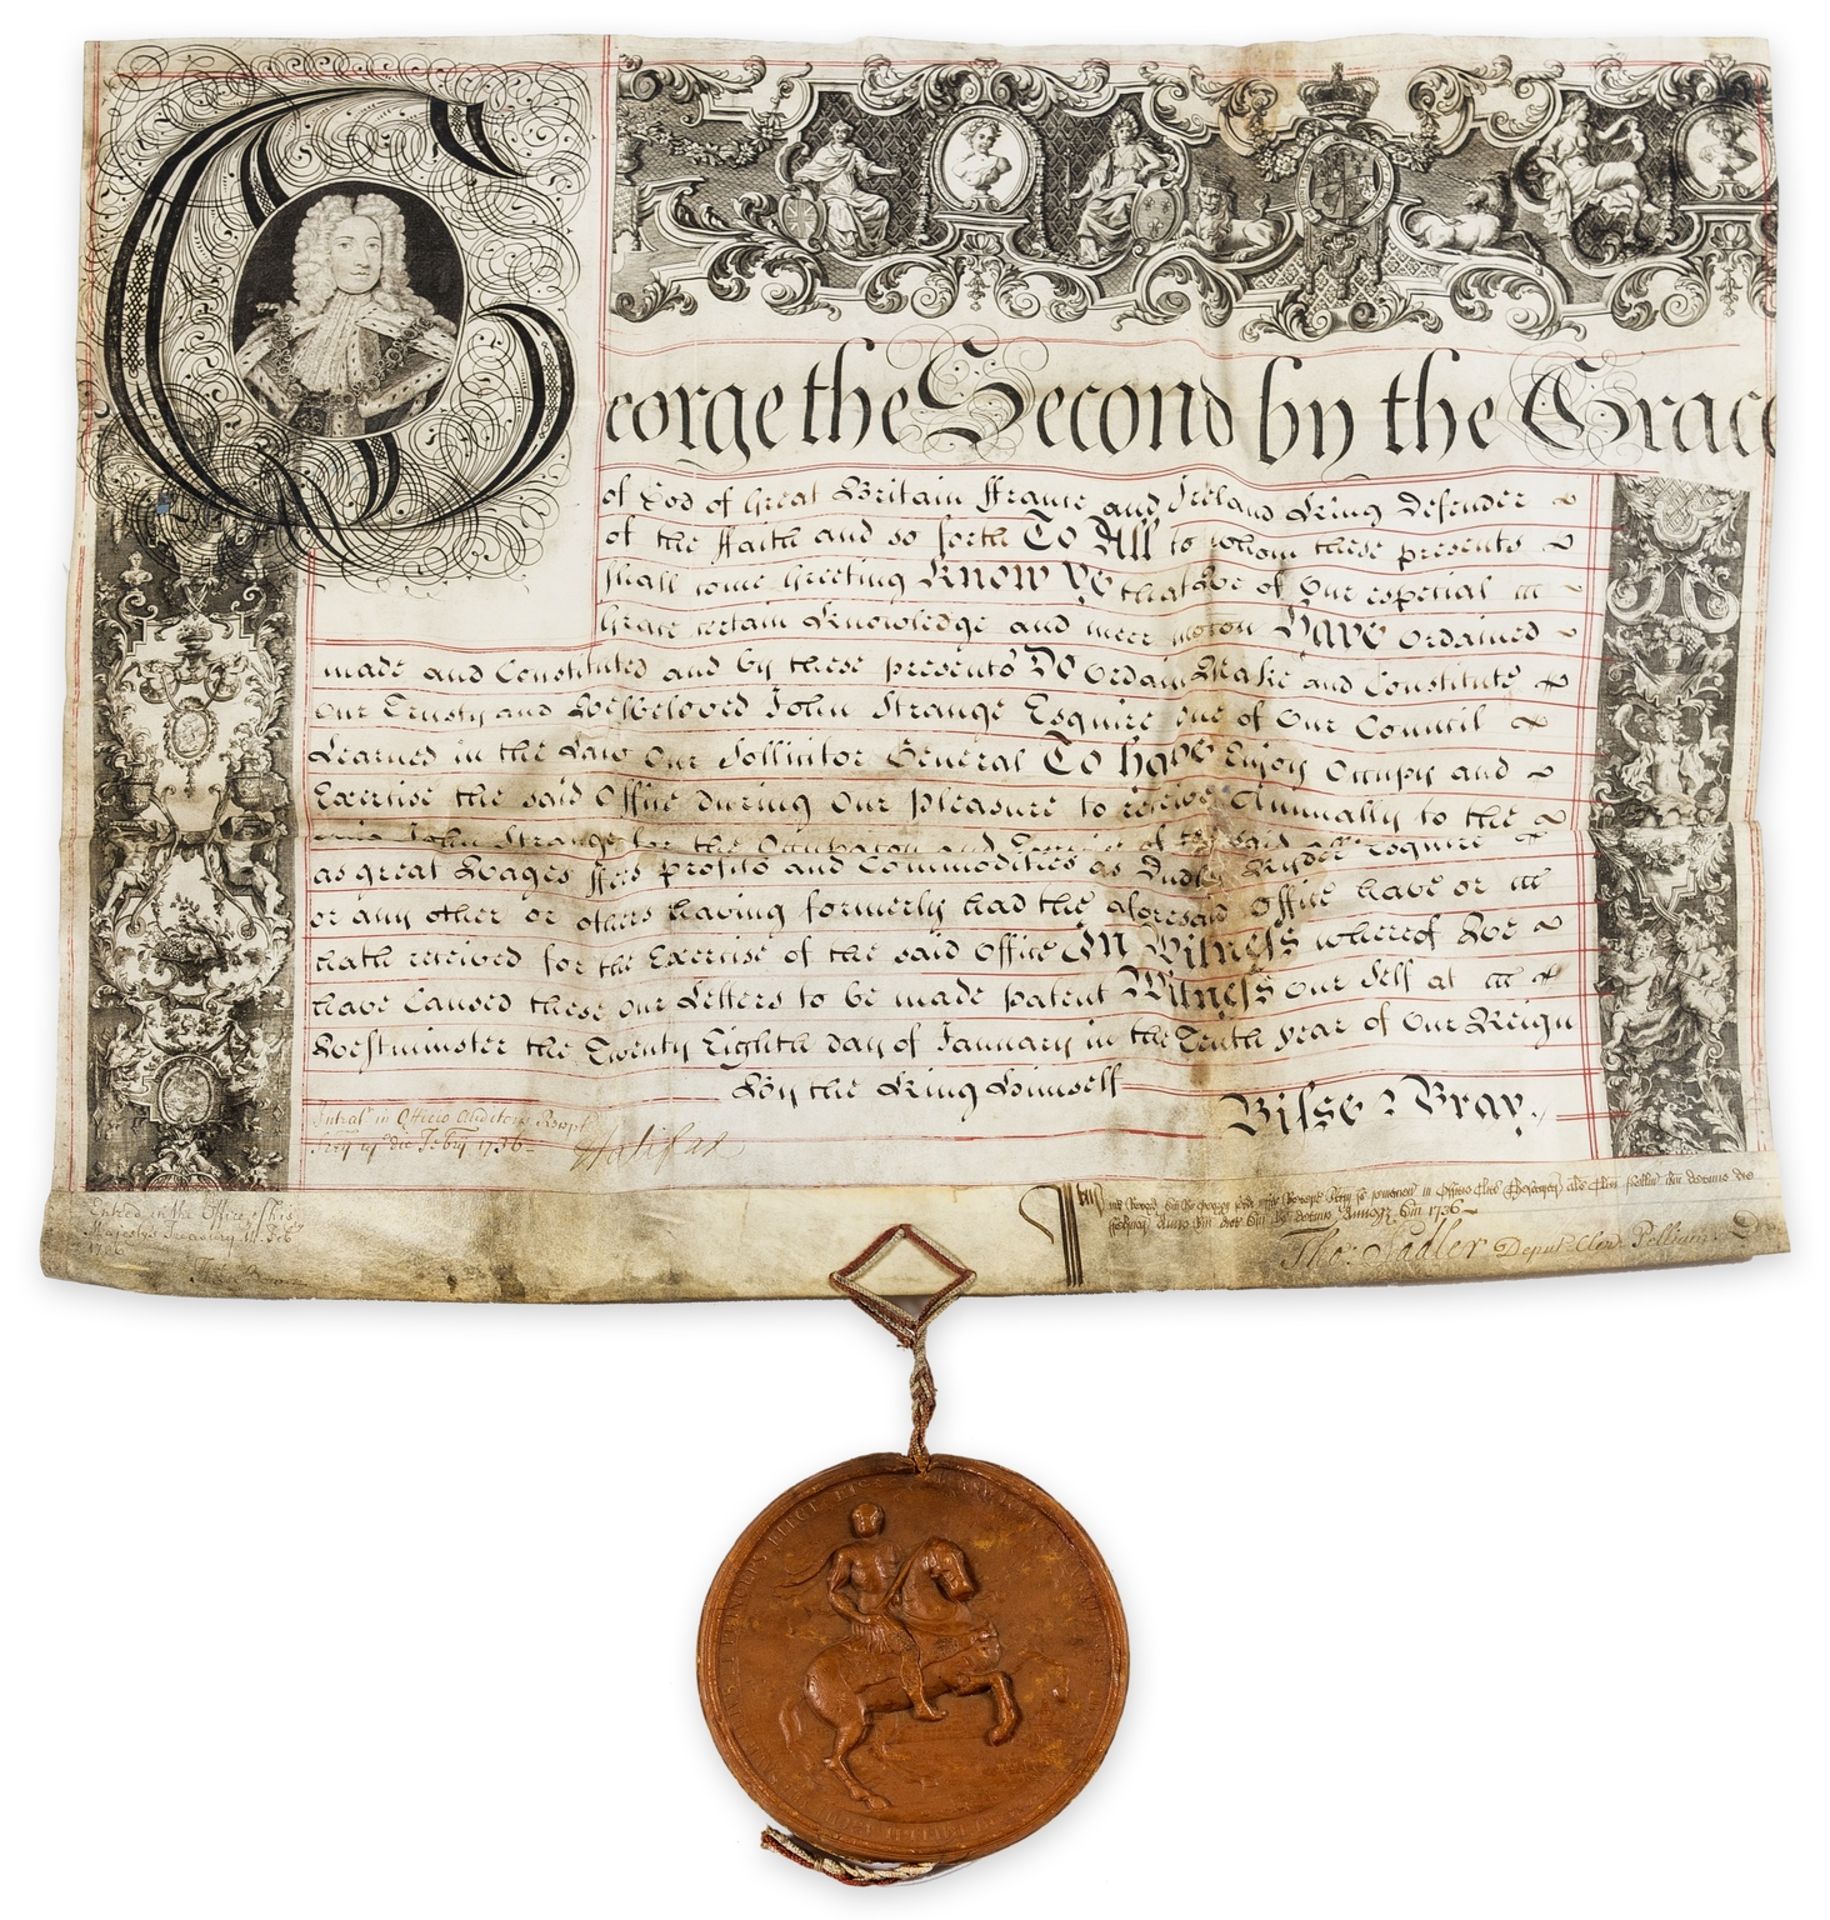 George the Second by the Grace
of God of Great Britain France and Ireland King Defender
of the Faith and so forth To All to whom these presents
shall come Greeting Know Ye that We of Our especial
Grace certain Knowledge and meer motion Have Ordained
made and Constituted and by these presents Do Ordain Make and Constitute
Our Trusty and Welbeloved John Strange Esquire one of Our Council
Learned in the Law Our Sollicitor General To have Enjoy Occupy and
Exercise the said Office during Our Pleasure to receive Annually to the
said John Strange for the Occupation and Exercise of the said Office
as great Wages ffees profits and Commodities as Dudley Ryder Esquire
or any other or others having formerly had the aforesaid Office have or
hath received for the Exercise of the said Office In Witness whereof We
have Caused these Our Letters to be made patent Witness Our Self at
Westminster the Twenty Eighth day of January in the Tenth year of Our Reign
By the King Himself
Bisse & Bray.
Intrat in Officio Auditoris Recept
1736
Halifax
Entred in the Office of his
Majestys Treasury 11 Feb
1736
1736
Tho: Sadler Deput Cler Pellium